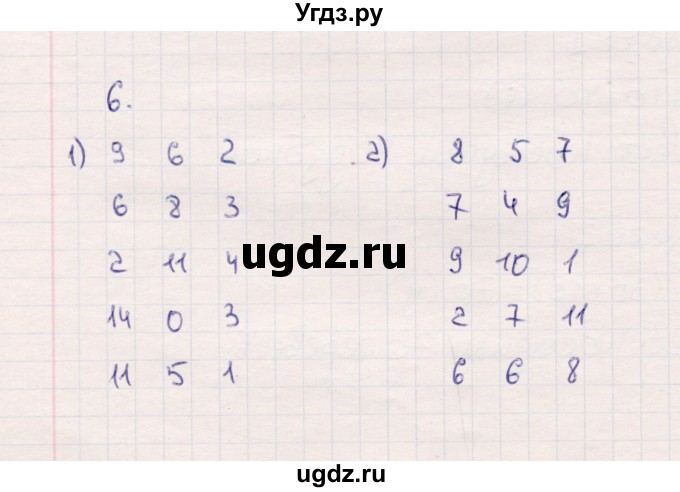 Угдз.ру
6.
1) 9 6 2 2) 8 5 7
6 8 3 7 4 9
2 11 4 9 10 1
ugdz.ru
14 0 3 2 7 11
11 5 1 6 6 8
ugdz.ru